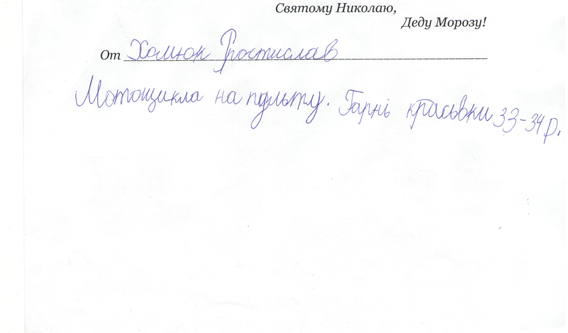 Святому Николаю,
Деду Морозу!
От Холюк Ростислав
Мотоцикла на пульту. Гарні красьвки 33-34 р.